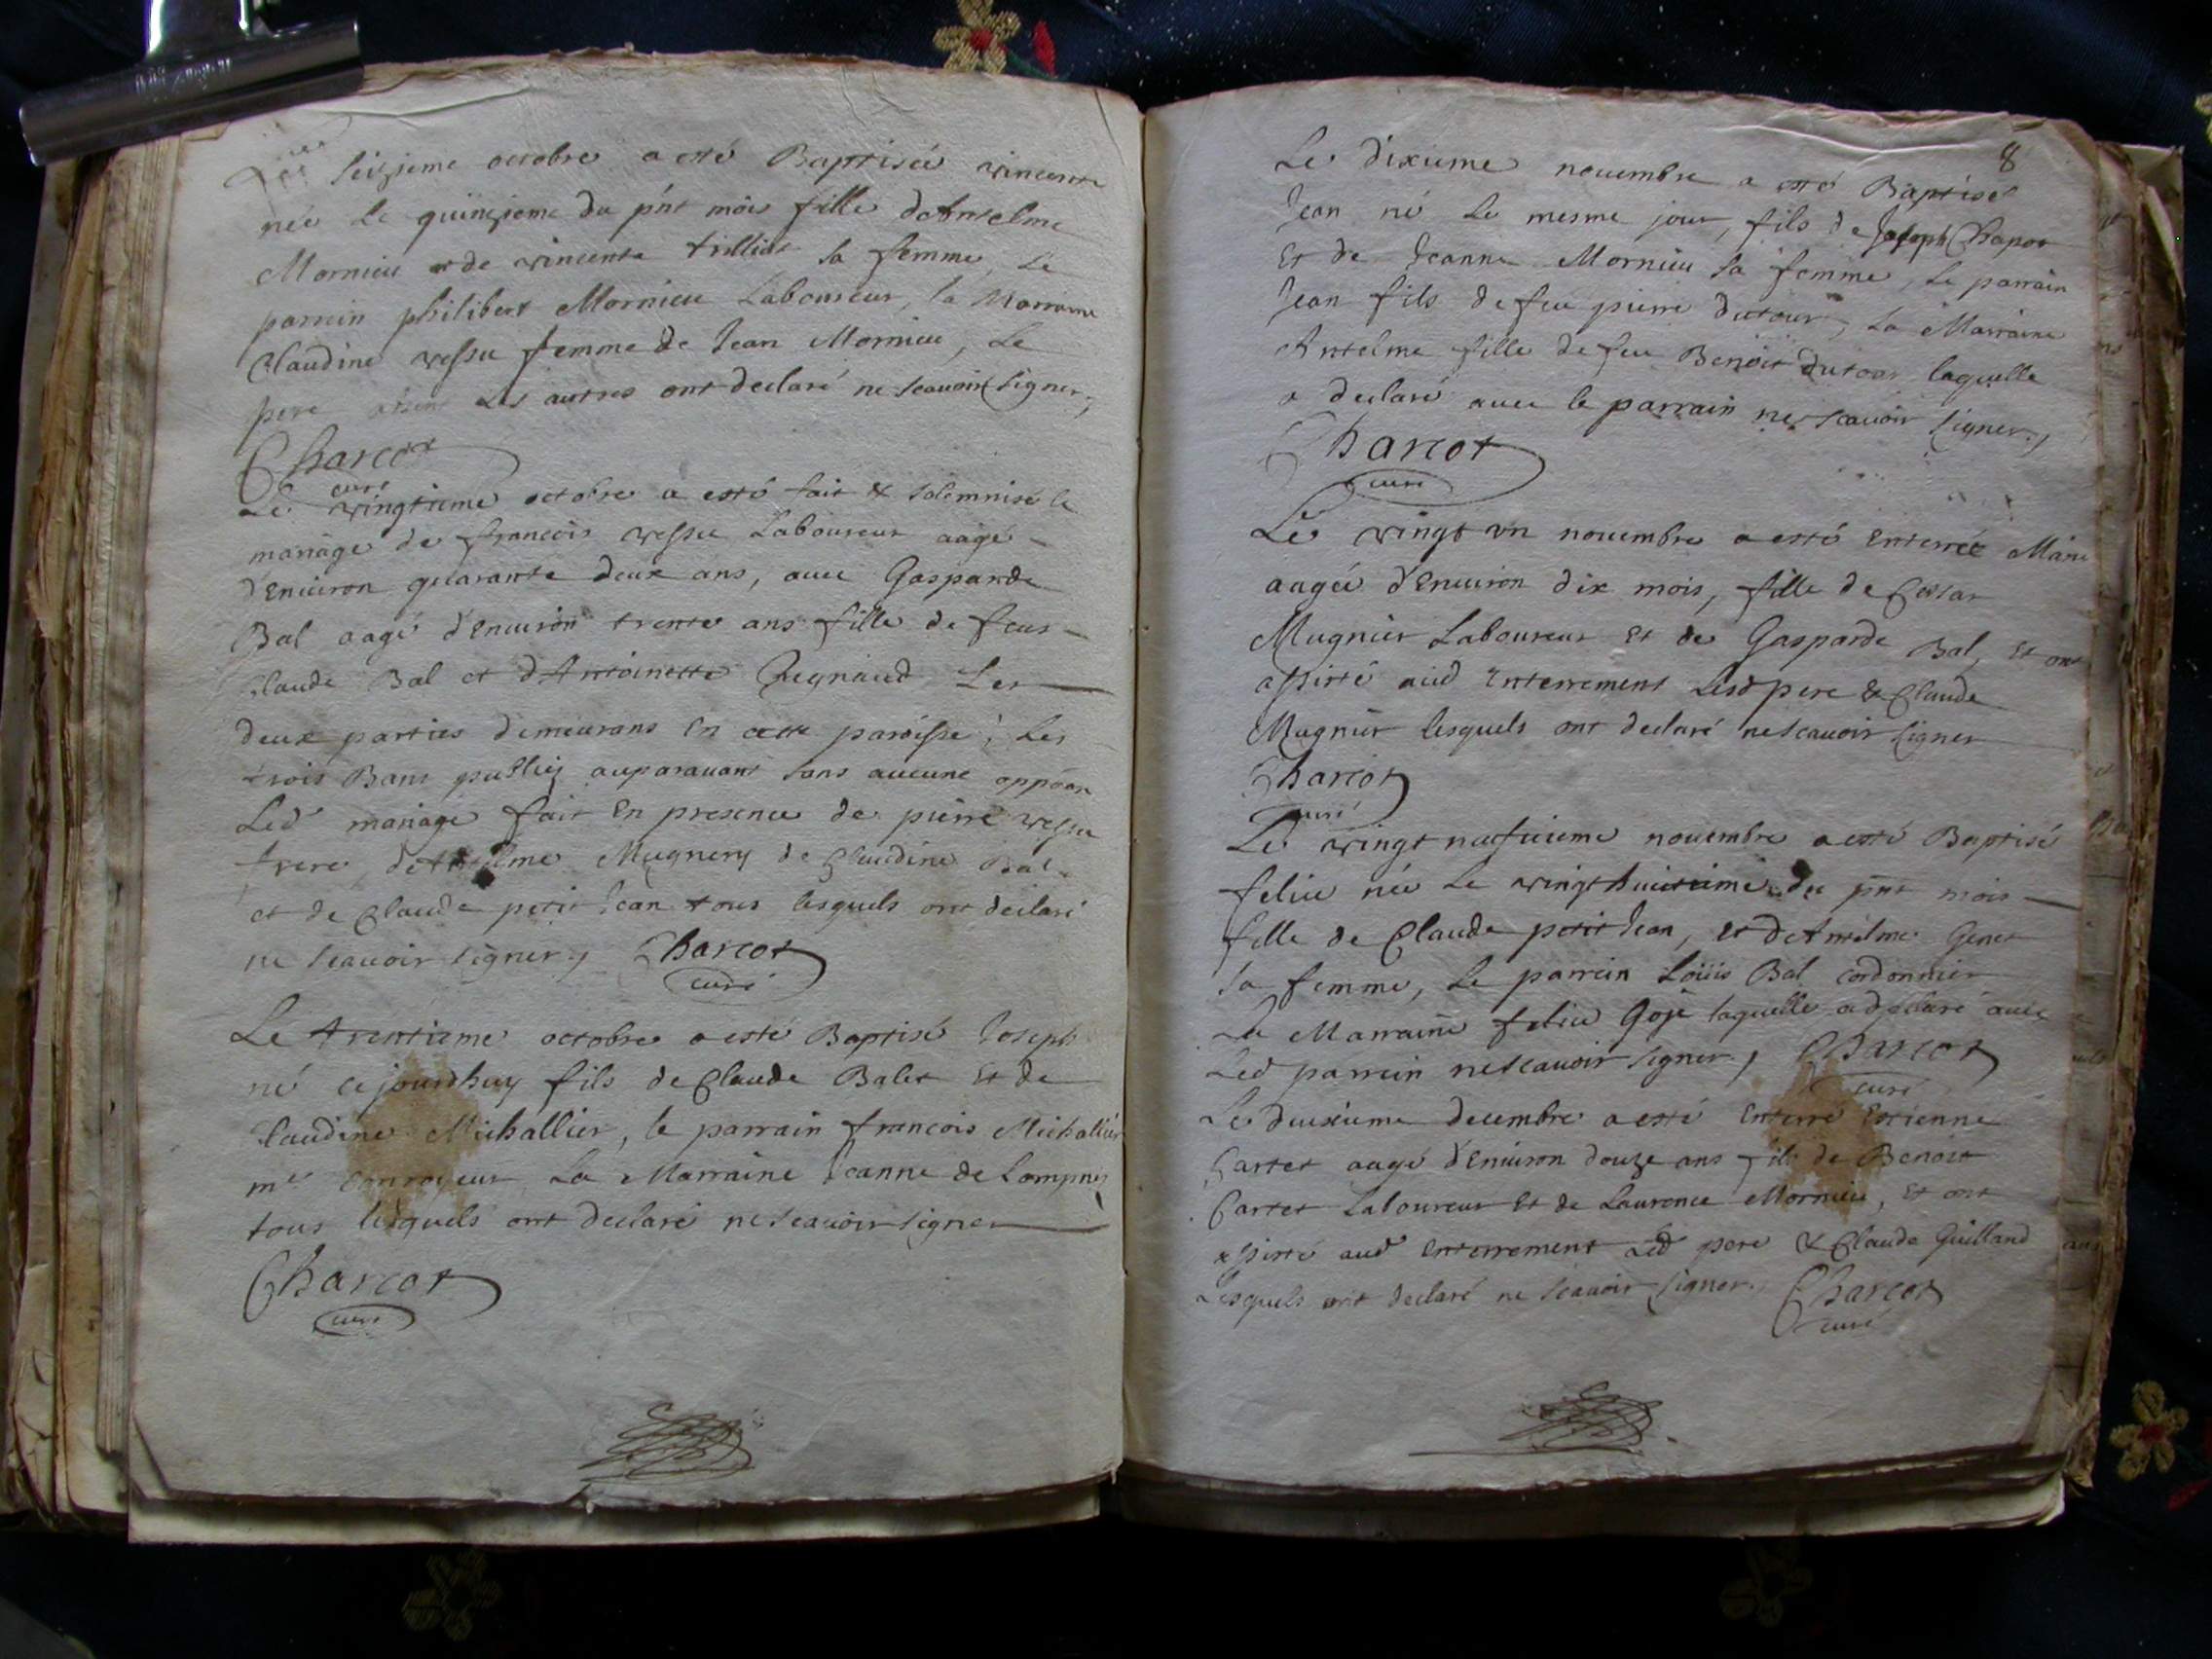 Le seizieme octobre a esté Baptisée vincente
née Le quinzieme du pñt mois fille d'Antelme
Mornieu et de vincente trilliat sa femme, Le
parrein philibert Mornieu Laboureur, la Marraine
Claudine vessu femme de Jean Mornieu, Le
pere absent Les autres ont declaré ne scauoir signer,
Charcot
curé
Le vingtieme octobre a esté fait & solemnisé le
mariage de françois vessu Laboureur aagé
d'Enuiron quarante deux ans, auec Gasparde
Bal aagé d'Enuiron trente ans fille de feus
Claude Bal et d'Antoinette Les
deux parties demeurans En cette paroisse, Les
trois Bans publiez auparauant sans aucune oppõon
Led' mariage fait En presence de pierre vessu
frere, d'Antelme Mugnery de Claudine Bal
et de Claude petit Jean tous lesquels ont declaré
ne scauoir signer, Charcot
curé
Le trentieme octobre a esté Baptisé Joseph
né ce jourdhuy fils de Claude Balet Et de
Claudine Michallier, le parrain françois Michallier
mre La Marraine Jeanne de Lompnes
tous lesquels ont declaré ne scauoir signer
Charcot
curé
8
Le dixieme nouembre a esté Baptisé
Jean né Le mesme jour, fils de Joseph Chapot
Et de Jeanne Mornieu sa femme, Le parrain
Jean fils de feu pierre dutour, La Marraine
Antelme fille de feu Benoit Dutour laquelle
a declaré auec le parrain ne scauoir signer,
Charcot
curé
Le vingt vn nouembre a esté Enterrée Marie
aagée d'Enuiron dix mois, fille de Cesar
Mugnier Laboureur Et de Gasparde Bal, Et ont
assisté aud Enterrement Lesd pere & Claude
Mugnier lesquels ont declaré ne scauoir signer
Charcot
curé
Le vingt neufuieme nouembre a esté Baptisé
felice née Le vingt huictieme du pñt mois
fille de Claude petit Jean, et d'Antelme Genet
sa femme, Le parrein Loüis Bal cordonnier
La Marraine felice Goje laquelle a declaré auec
Led parrein ne scauoir signer, Charcot
curé
Le deuxieme decembre a esté Enterré Estienne
Cartet aagé d'Enuiron douze ans fils de Benoit
Cartet Laboureur Et de Laurence Mornieu, Et ont
assisté aud Enterrement Led pere & Claude Guilland
Lesquels ont declaré ne scauoir signer, Charcot
curé